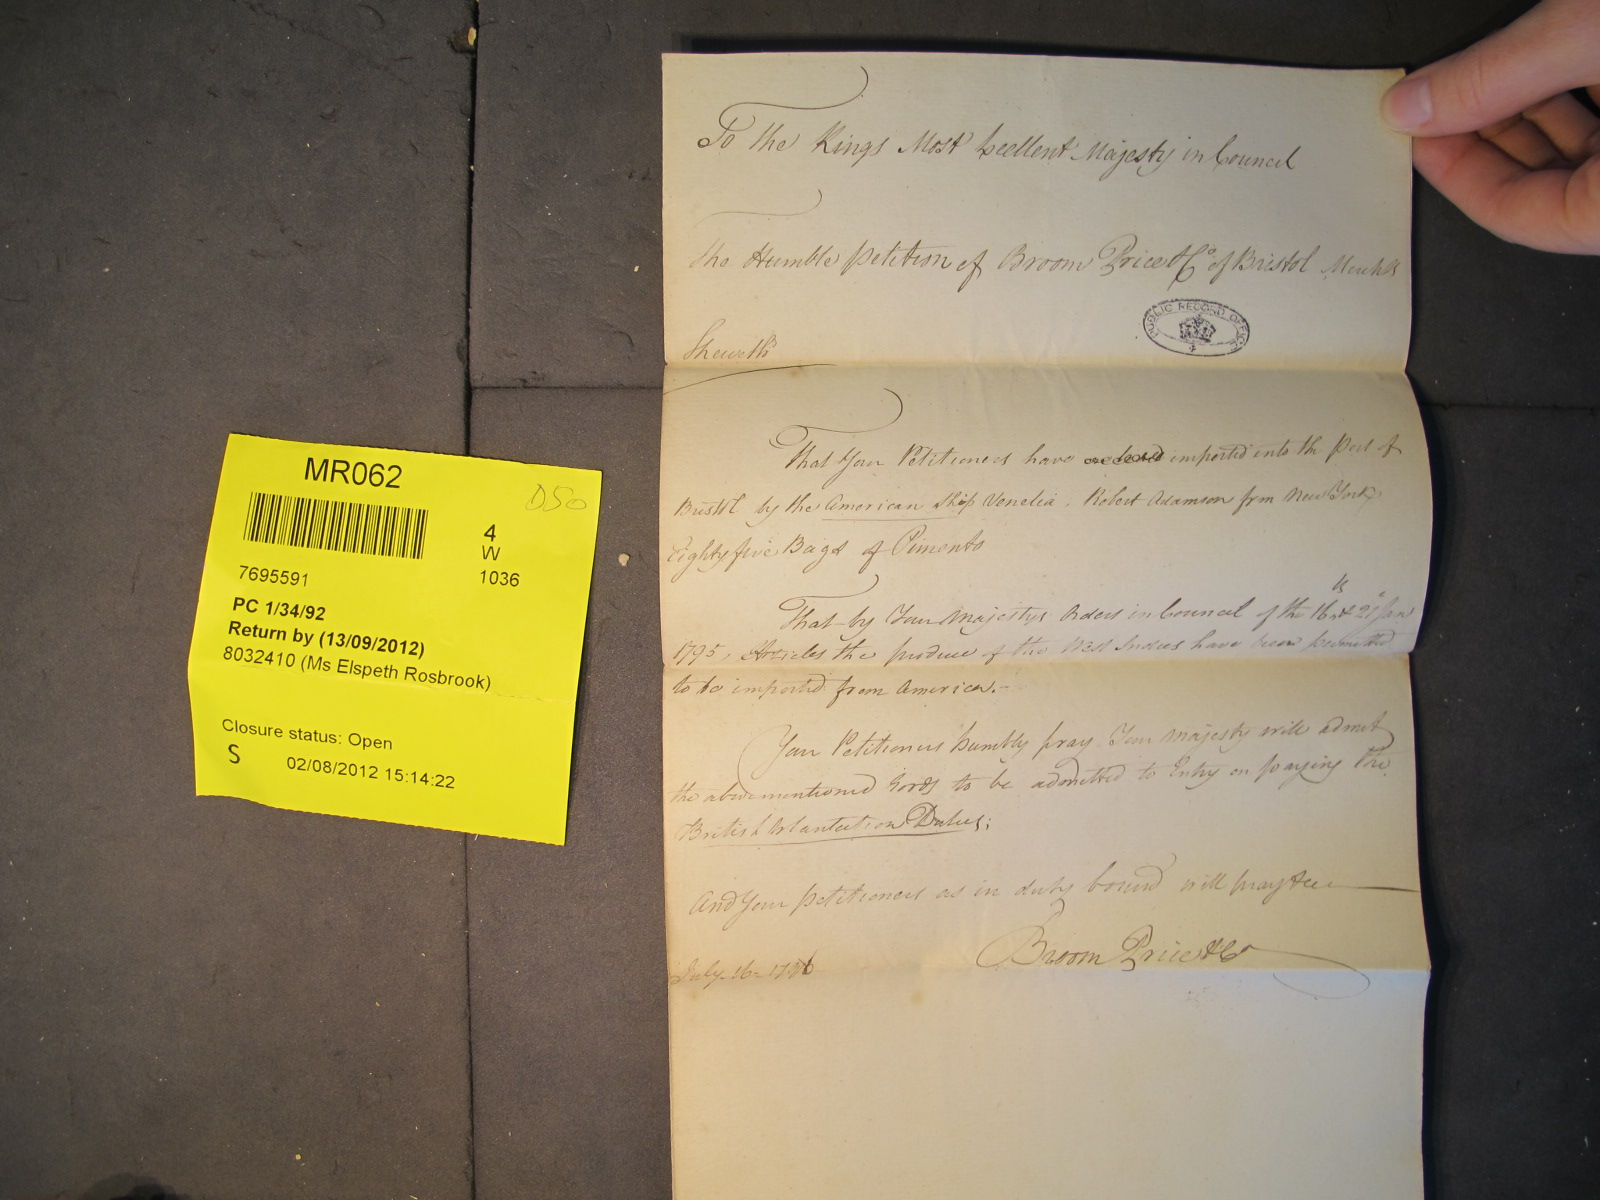 To the Kings Most Excellent Majesty in Council
The Humble Petition of Broom Price & Co of Bristol Merchts
PUBLIC RECORD OFFICE
Sheweth
That Your Petitioners have imported into the Port of
Bristol by the American Ship Venelia, Robert Adamson from New York
Eighty five Bags of Pimento
That by Your Majestys Orders in Council of the 16th & 21st Jan
1795, Articles the produce of the West Indies have been permitted
to be imported from America.
Your Petitioners humbly pray Your Majesty will admit
the abovementioned Goods to be admitted to Entry on paying the
British Plantation Duties;
And Your petitioners as in duty bound will pray &c
Broom Price & Co
July 16 1796
MR062
D50
4
W
1036
7695591
PC 1/34/92
Return by (13/09/2012)
8032410 (Ms Elspeth Rosbrook)
Closure status: Open
S
02/08/2012 15:14:22